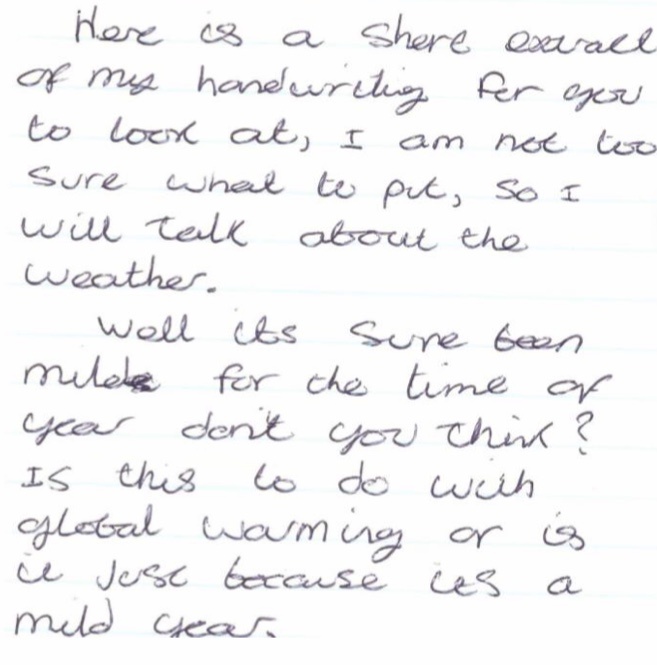 Here is a short extract
of my handwriting for you
to look at, I am not too
sure what to put, so I
will talk about the
weather.
Well its sure been
mild for the time of
year don't you think?
Is this to do with
global warming or is
it just because its a
mild year.